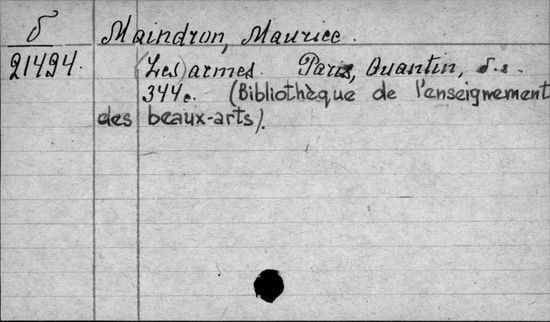 δ
21494.
Maindron, Maurice.
(Les) armes. Paris, Quantin, s.a.
344c. (Bibliothèque de l'enseignement
des beaux-arts).